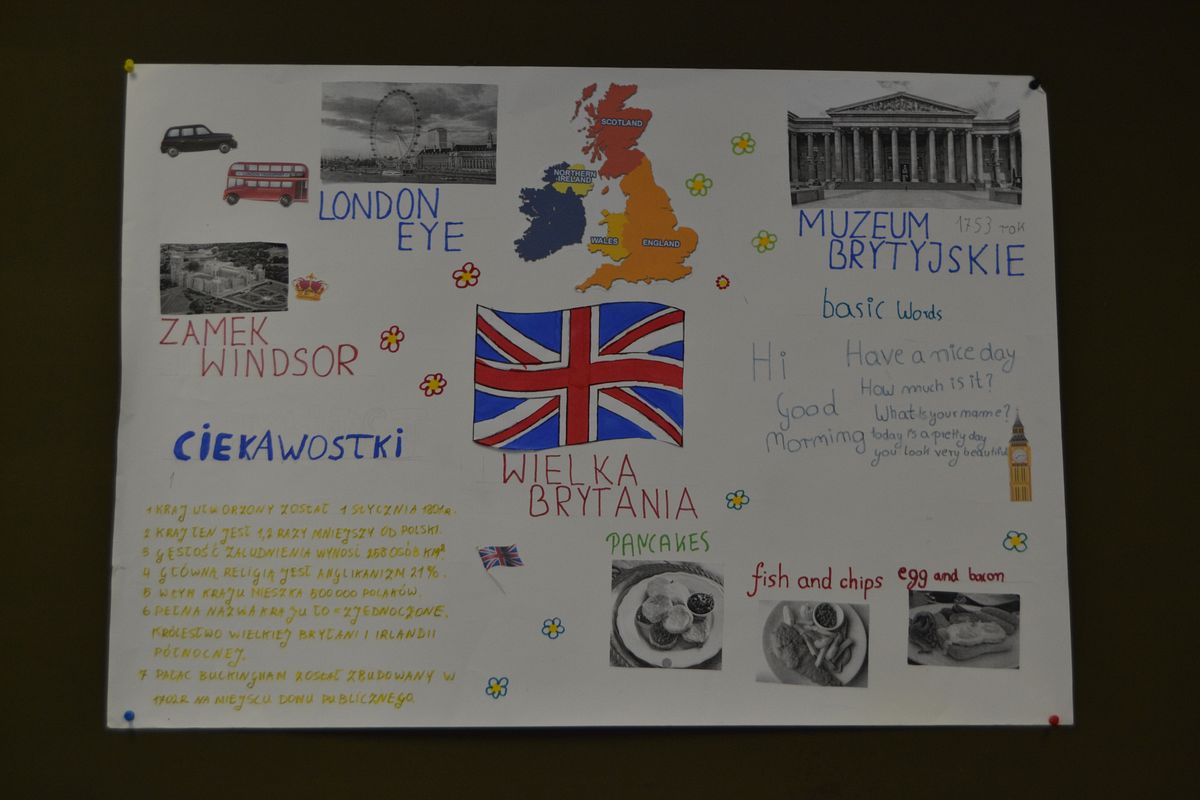 LONDON
EYE
SCOTLAND
NORTHERN
IRELAND
WALES
ENGLAND
MUZEUM 1753 rok
BRYTYJSKIE
ZAMEK
WINDSOR
basic words
Hi
Have a nice day
How much is it?
Good
Morning
What is your mame?
today is a pretty day
you look very beautiful
CIEKAWOSTKI
1 KRAJ UTWORZONY ZOSTAŁ 1 STYCZNIA 1801R.
2 KRAJ TEN JEST 1,2 RAZY MNIEJSZY OD POLSKI.
3 GĘSTOŚĆ ZALUDNIENIA WYNOSI 258 OSÓB KM²
4 GŁÓWNĄ RELIGIĄ JEST ANGLIKANIZM 21%.
5 W TYM KRAJU MIESZKA 500 000 POLAKÓW.
6 PEŁNA NAZWA KRAJU TO = ZJEDNOCZONE
KRÓLESTWO WIELKIEJ BRYTANI I IRLANDII
PÓŁNOCNEJ.
7 PAŁAC BUCKINGHAM ZOSTAŁ ZBUDOWANY W
1702R NA MIEJSCU DOMU PUBLICZNEGO.
WIELKA
BRYTANIA
PANCAKES
fish and chips
egg and bacon